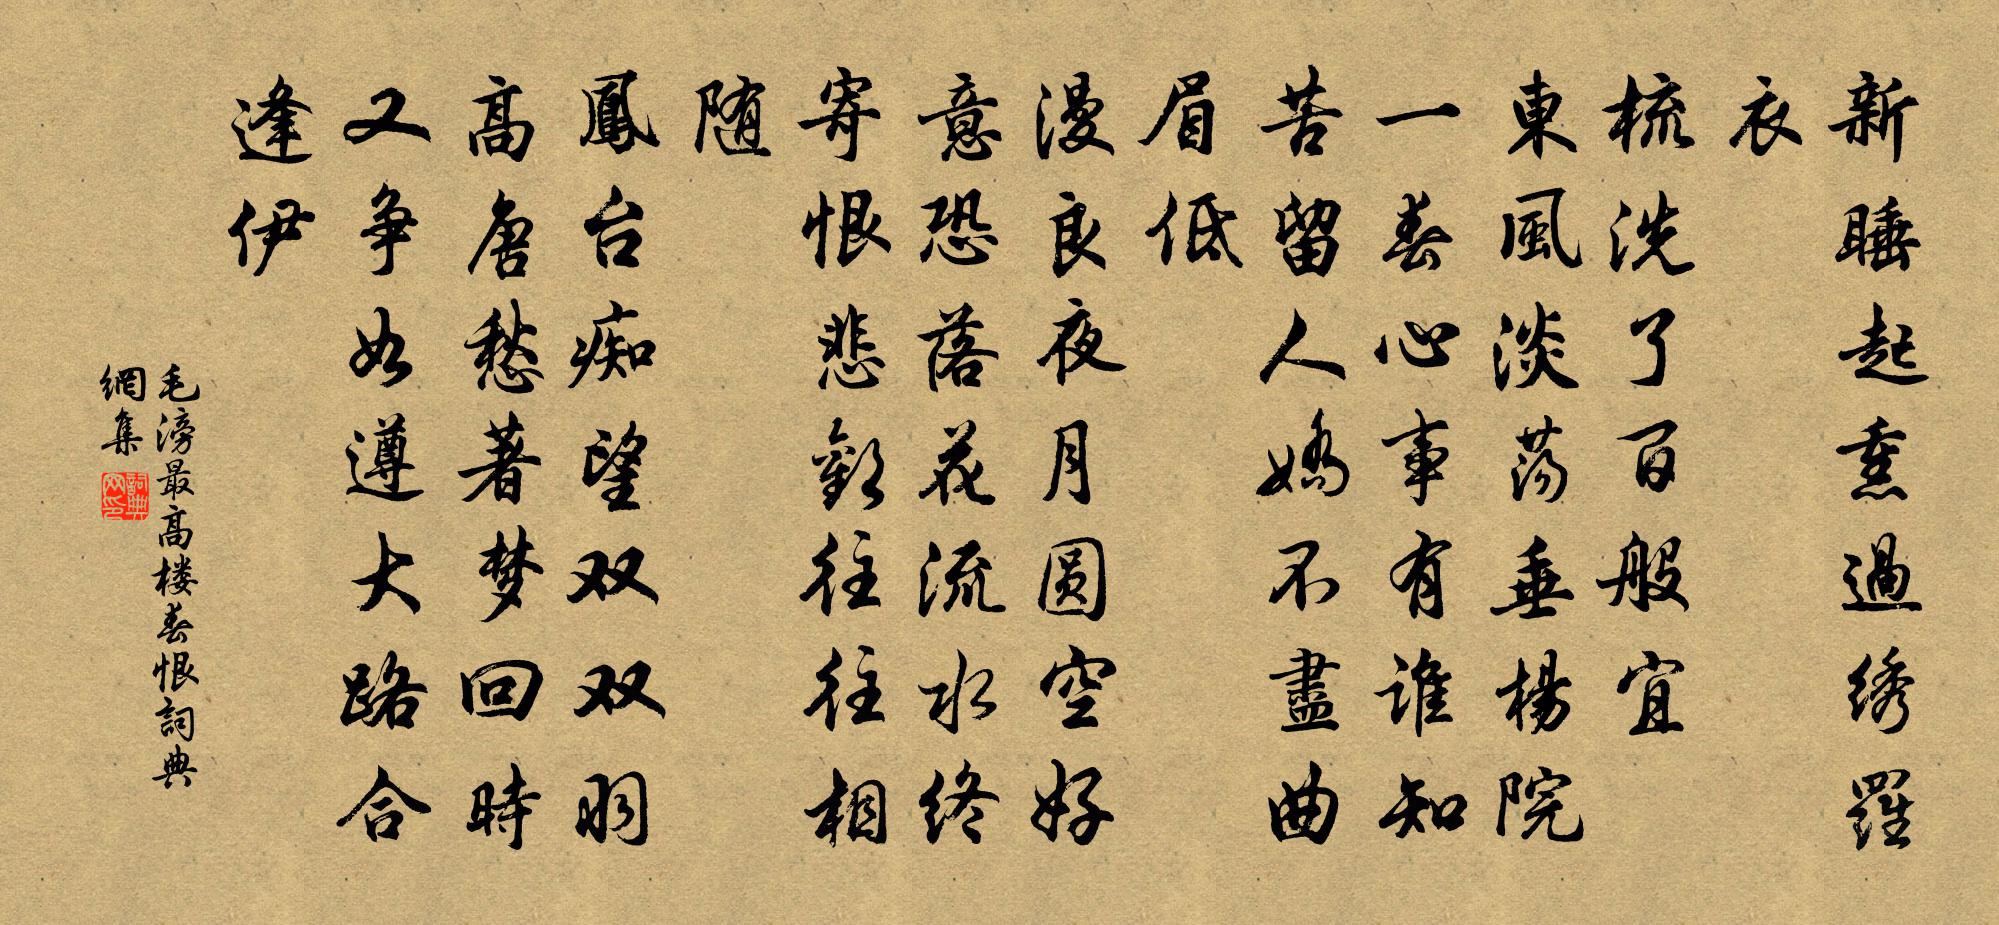 新睡起熏過绣羅
衣
梳洗了百般宜
東風淡荡垂楊院
一春心事有谁知
苦留人嬌不盡曲
眉低
漫良夜月圆空好
意恐落花流水终
寄恨悲歡往往相
随
鳳台痴望双双羽
高唐愁著梦回時
又争如遵大路合
逢伊
毛滂最高楼春恨詞典
網集
詞典
网印